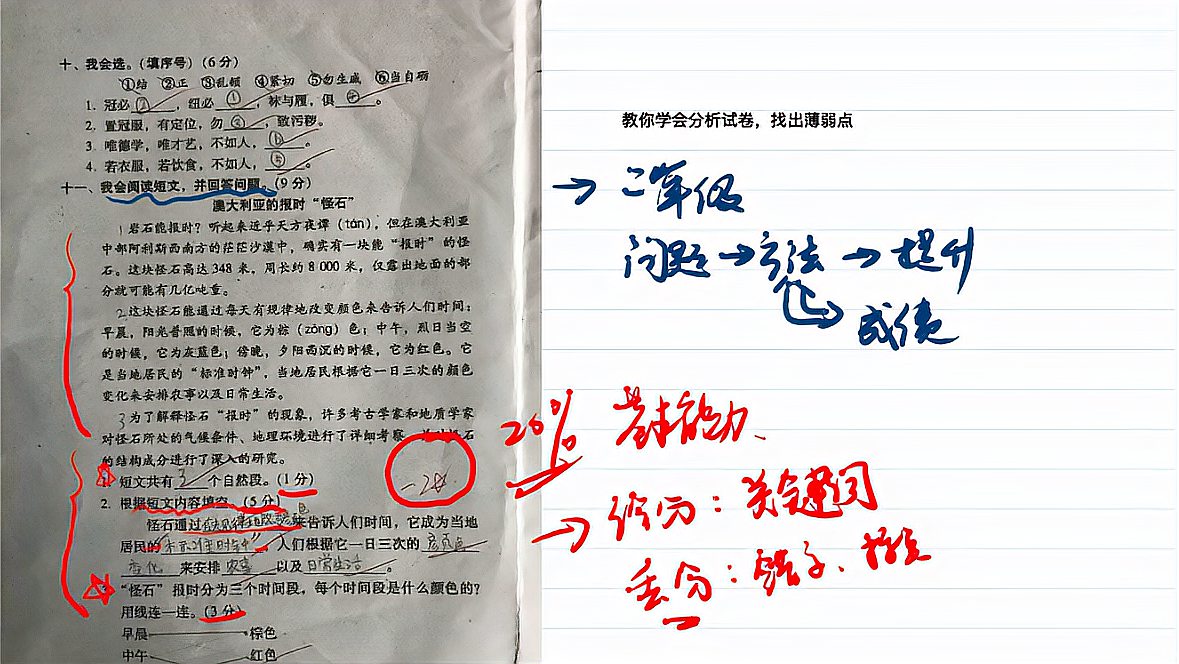 十、我会选。(填序号)(6分)
①结 ②正 ③乱顿 ④紧切 ⑤勿生戚 ⑥当自砺
1. 冠必②，纽必①，袜与履，俱④。
2. 置冠服，有定位，勿③，致污秽。
3. 唯德学，唯才艺，不如人，⑥。
4. 若衣服，若饮食，不如人，⑤。
十一、我会阅读短文，并回答问题。(9分)
澳大利亚的报时“怪石”
1 岩石能报时？听起来近乎天方夜谭（tán），但在澳大利亚
中部阿利斯西南方的茫茫沙漠中，确实有一块能“报时”的怪
石。这块怪石高达348米，周长约8000米，仅露出地面的部
分就可能有几亿吨重。
2 这块怪石能通过每天有规律地改变颜色来告诉人们时间：
早晨，阳光普照的时候，它为棕（zōng）色；中午，烈日当空
的时候，它为灰蓝色；傍晚，夕阳西沉的时候，它为红色。它
是当地居民的“标准时钟”，当地居民根据它一日三次的颜色
变化来安排农事以及日常生活。
3 为了解释怪石“报时”的现象，许多考古学家和地质学家
对怪石所处的气候条件、地理环境进行了详细考察，并对怪石
的结构成分进行了深入的研究。
1. 短文共有 3 个自然段。(1分)
2. 根据短文内容填空。(5分)
怪石通过有规律地改变颜色来告诉人们时间，它成为当地
居民的“标准时钟”。人们根据它一日三次的颜色
变化 来安排 农事 以及 日常生活。
3. “怪石”报时分为三个时间段，每个时间段是什么颜色的？
用线连一连。(3分)
早晨 棕色
中午 红色
教你学会分析试卷，找出薄弱点
→ 二年级
问题→方法→提升
成绩
20% 基本能力、
→ 给分：关键词
丢分：错字、标点